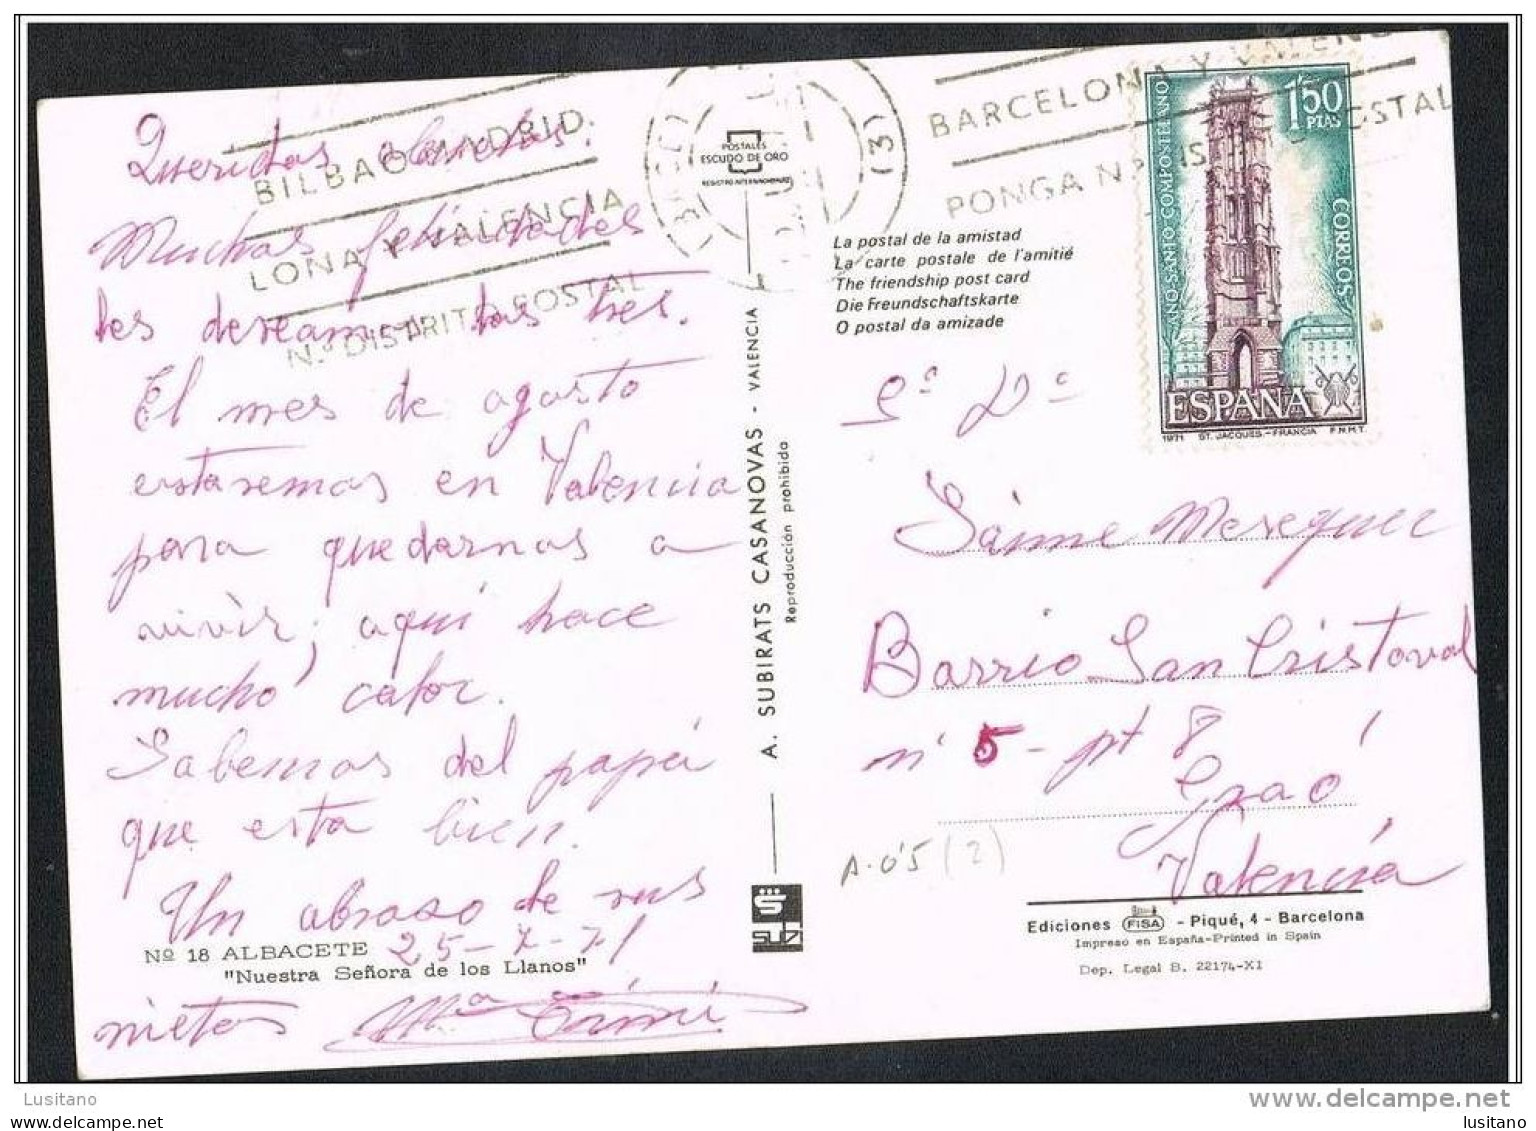 Queridos abuelos.
Muchas felicidades
les desean los tres.
El mes de agosto
estaremos en Valencia
para quedarnos a
vivir, aquí hace
mucho calor.
Sabemos del papá
que esta bien.
Un abraso de sus
Nº 18 ALBACETE
25-7-71
"Nuestra Señora de los Llanos"
nietos Mª
BILBAO MADRID.
LONA Y VALENCIA
Nº DISTRITO POSTAL
POSTALES
ESCUDO DE ORO
REGISTRO INTERNACIONAL
(3)
BARCELONA Y VALENC
PONGA Nº DIS POSTAL
A. SUBIRATS CASANOVAS - VALENCIA
Reproducción prohibida
SUBI
La postal de la amistad
La carte postale de l'amitié
The friendship post card
Die Freundschaftskarte
O postal da amizade
AÑO SANTO COMPOSTELANO
1'50
PTAS
CORREOS
ESPAÑA
1971 ST. JACQUES.-FRANCIA F.N.M.T.
Sª Dª
Jaime Meseguer
Barrio San Cristoval
nº 5 - pt 8
Grao
Valencia
A-05 (2)
Ediciones FISA - Piqué, 4 - Barcelona
Impreso en España-Printed in Spain
Dep. Legal B. 22174-XI
Lusitano
delcampe.net
www.delcampe.net
lusitano